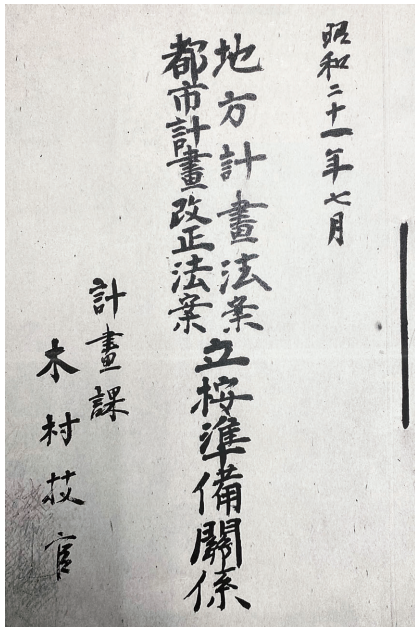 昭和二十一年七月
地方計畫法案
都市計畫改正法案
立按準備關係
計畫課
木村技官